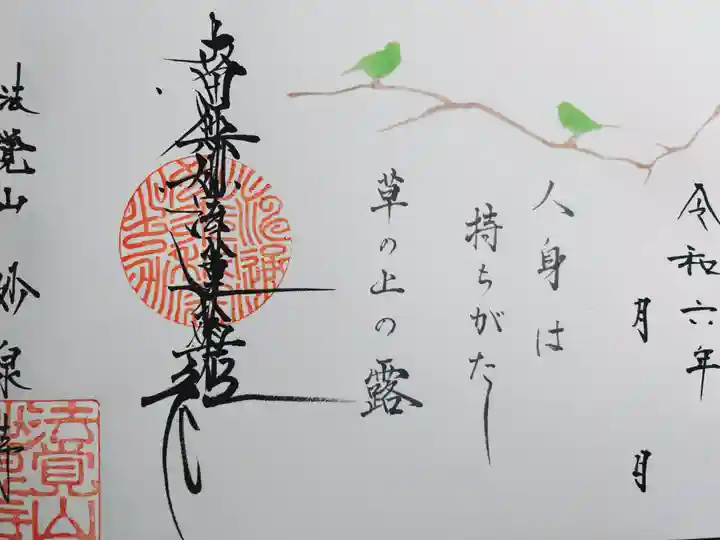 令和六年
月 月
人身は
持ちがたし
草の上の露
南無妙法蓮華経
法覺山 妙泉寺
法覚山